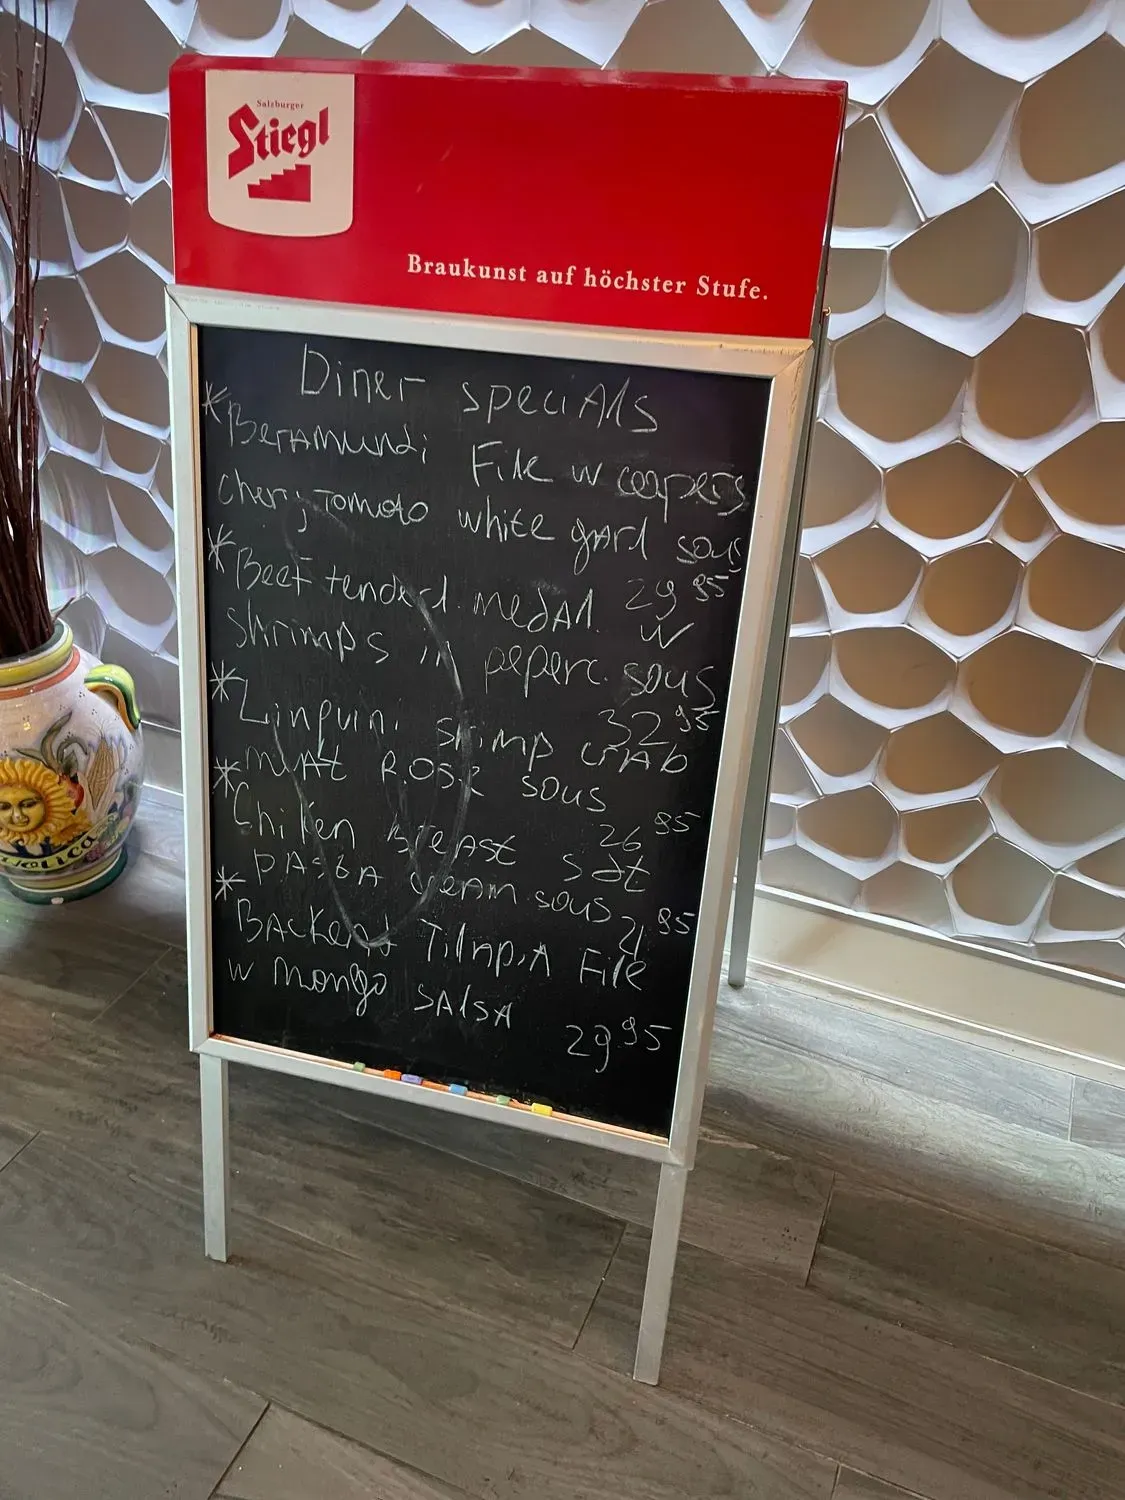 Salzburger
Stiegl
Braukunst auf höchster Stufe.
Diner specials
*Beramundi File w capers
chery tomato white gard sous
29 95
*Beef tenderl. medal. w
shrimps in peperc. sous
32 95
*Linguini shimp crab
meat Rose sous
26 95
*Chiken Breast sat
pasta cream sous 21 95
*Backend Tilapia File
w mongo salsa
29 95